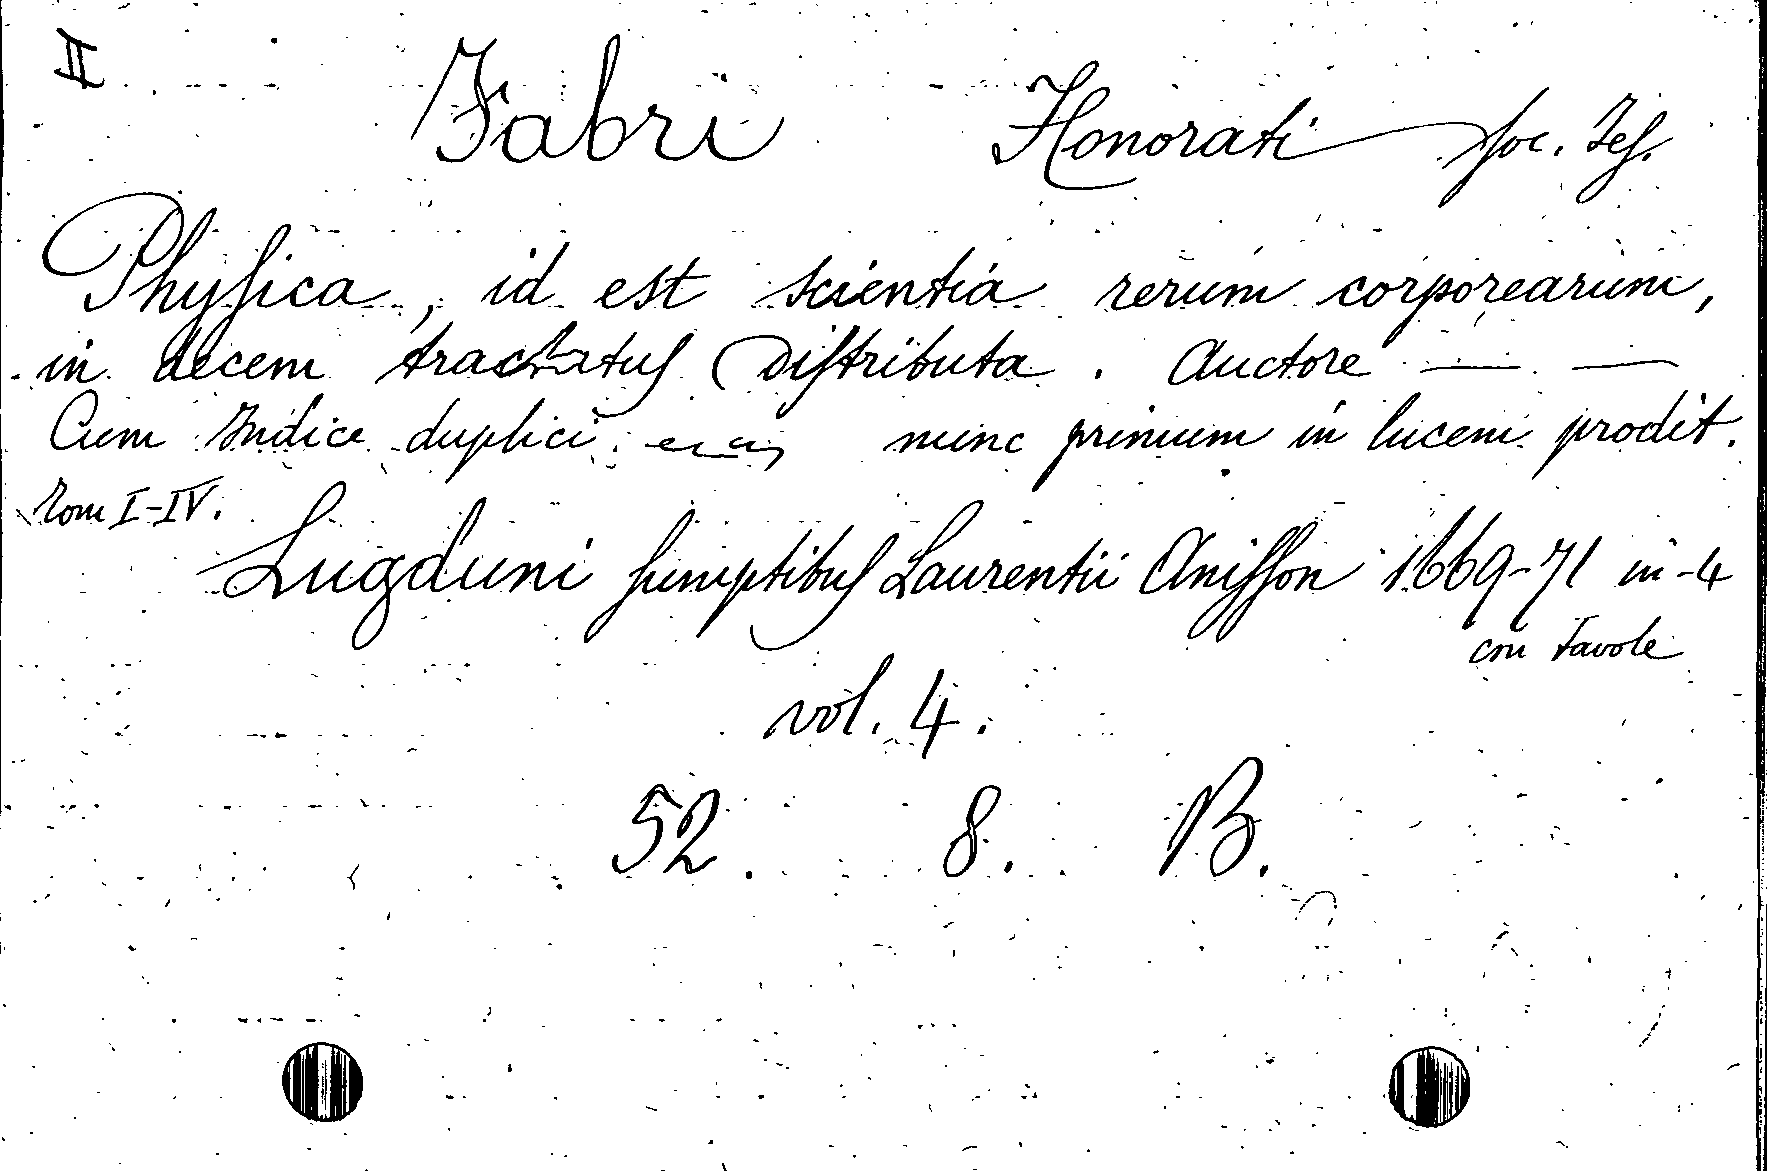 II Fabri Honorati Soc. Jes.
Physica, id est scientia rerum corporearum,
in decem tractatus distributa. Auctore — —
Cum Indice duplici. nunc primum in lucem prodit.
Tom I-IV.
Lugduni sumptibus Laurentii Anisson 1669-71 in-4
con tavole
vol. 4.
52. 8. B.